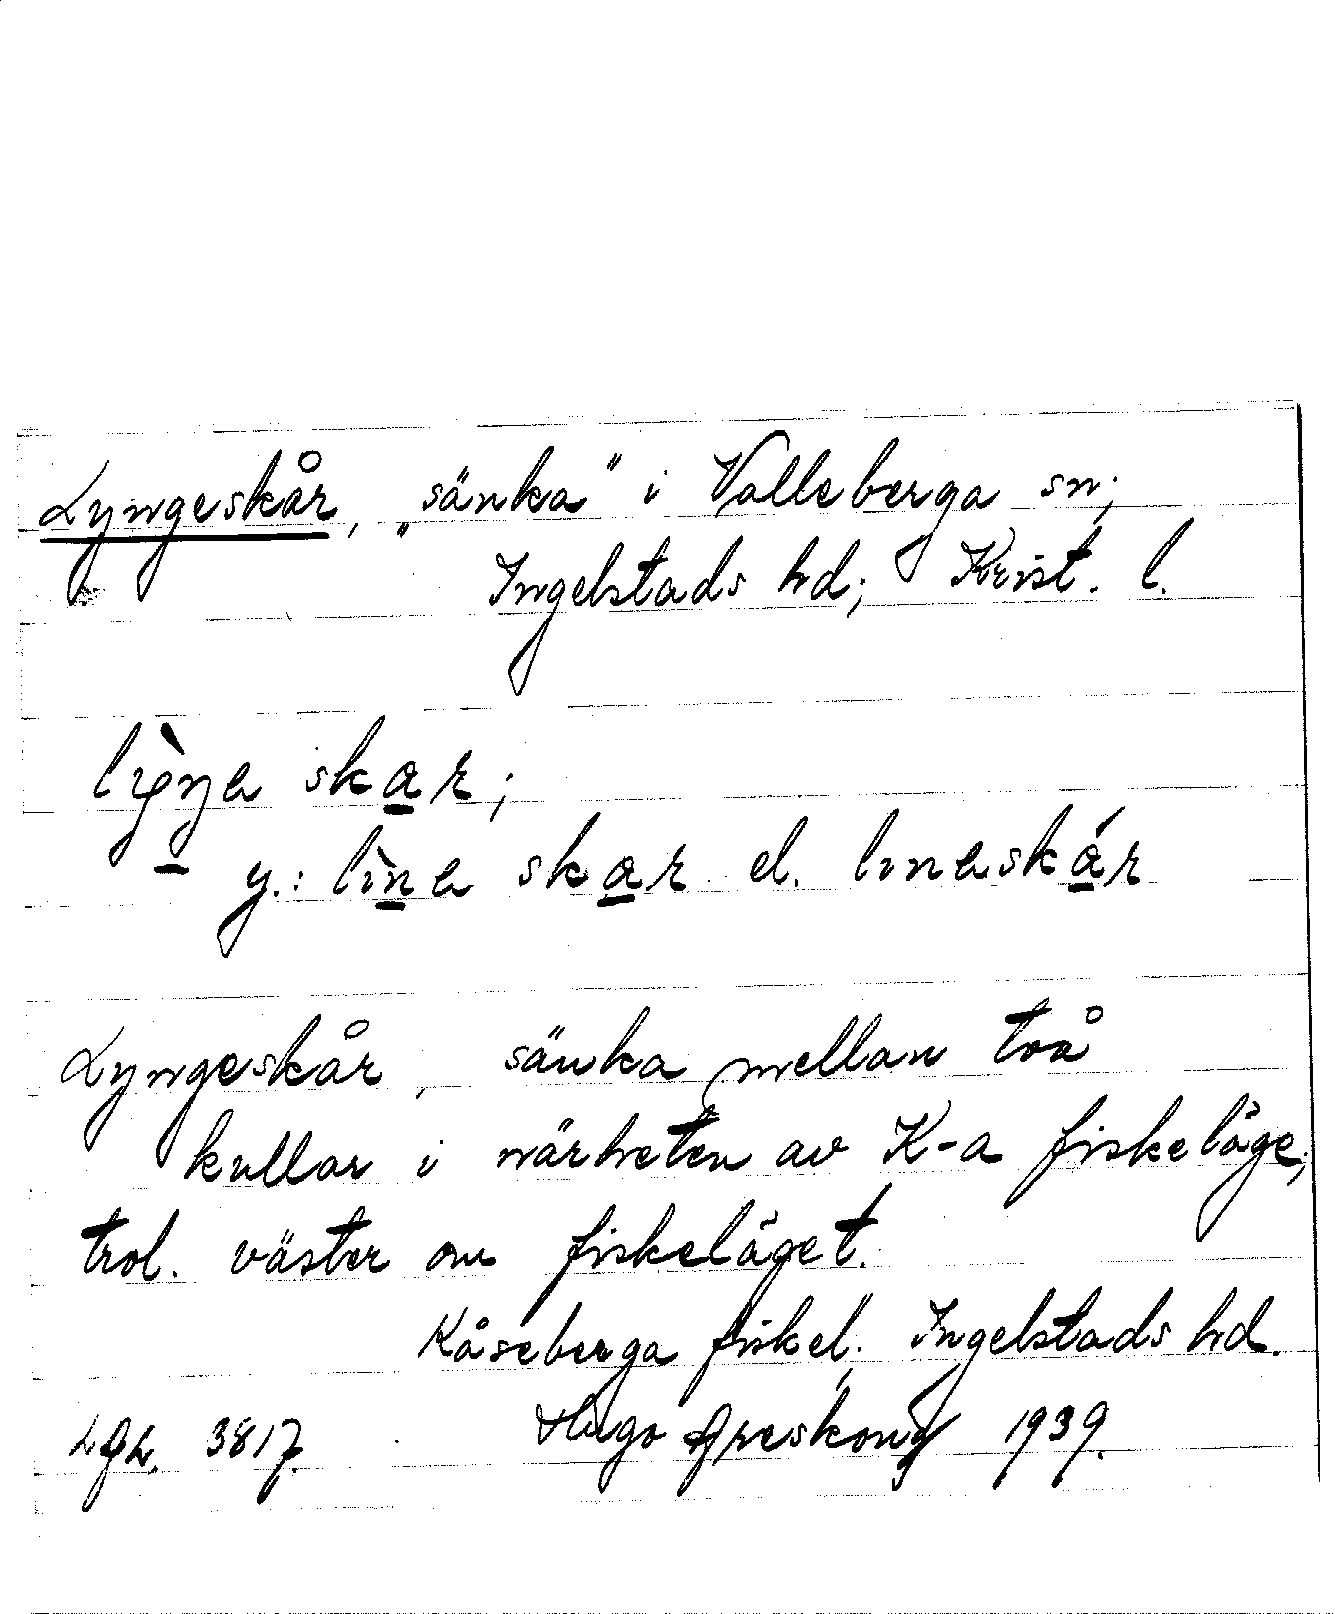 Lyngeskår, „sänka” i Valleberga sn;
Ingelstads hd; Krist. l.
skar;
y.: lìna skar el. lınaskár
Lyngeskår, sänka mellan två
kullar i närheten av K-a fiskeläge,
trol. väster om fiskeläget.
Kåseberga fiskel. Ingelstads hd.
3817. Hugo Areskoug 1939.